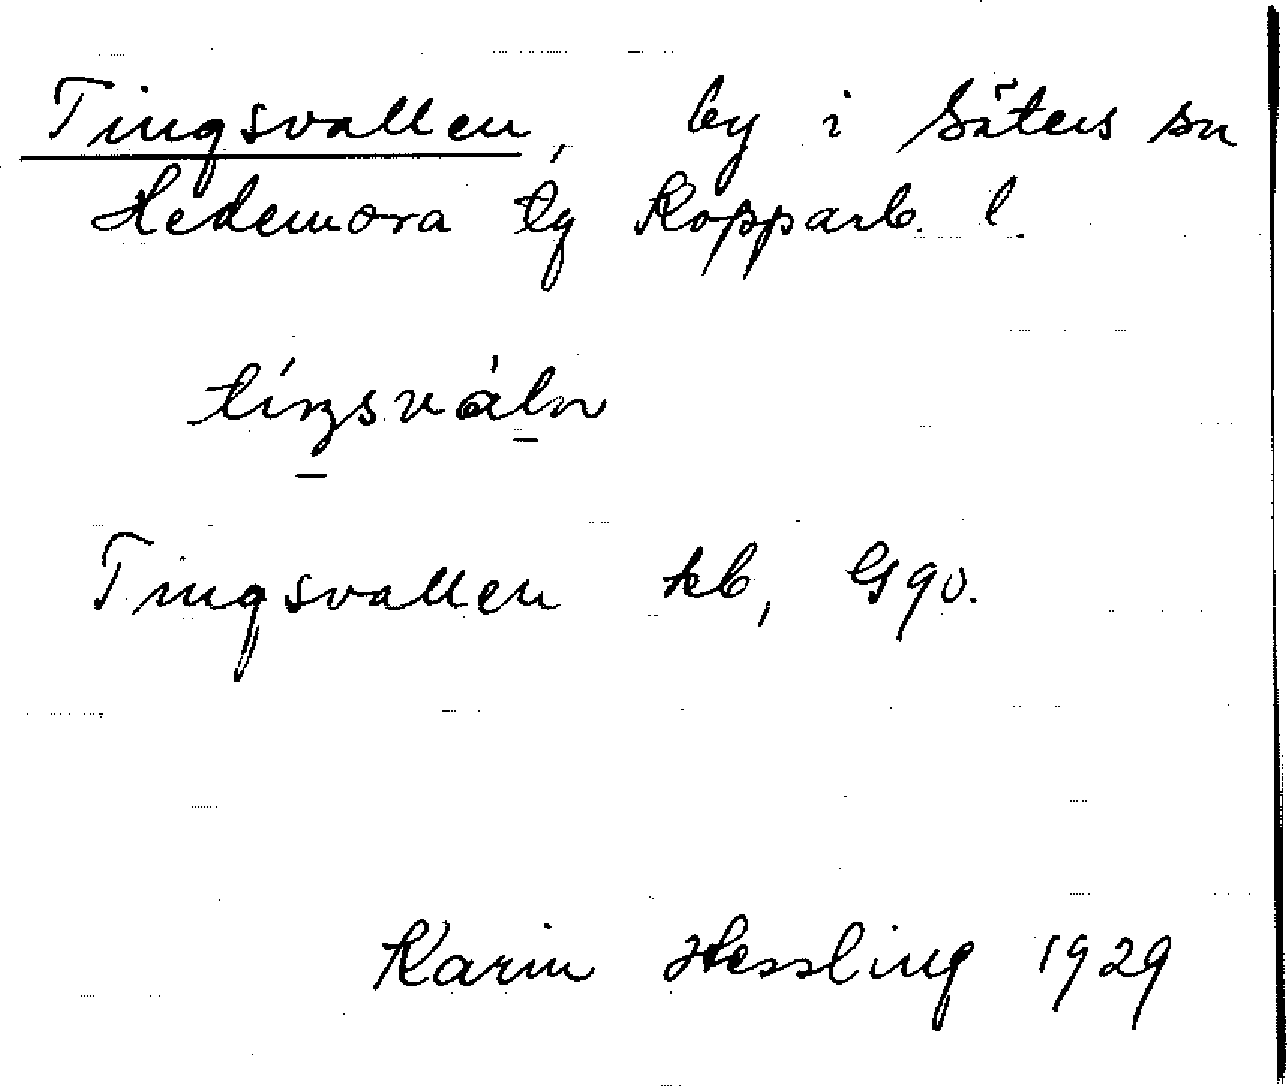 Tingsvallen, by i Säters sn
Hedemora tg Kopparb. l.
Tingsvallen kb, G90.
Karin Hessling 1929